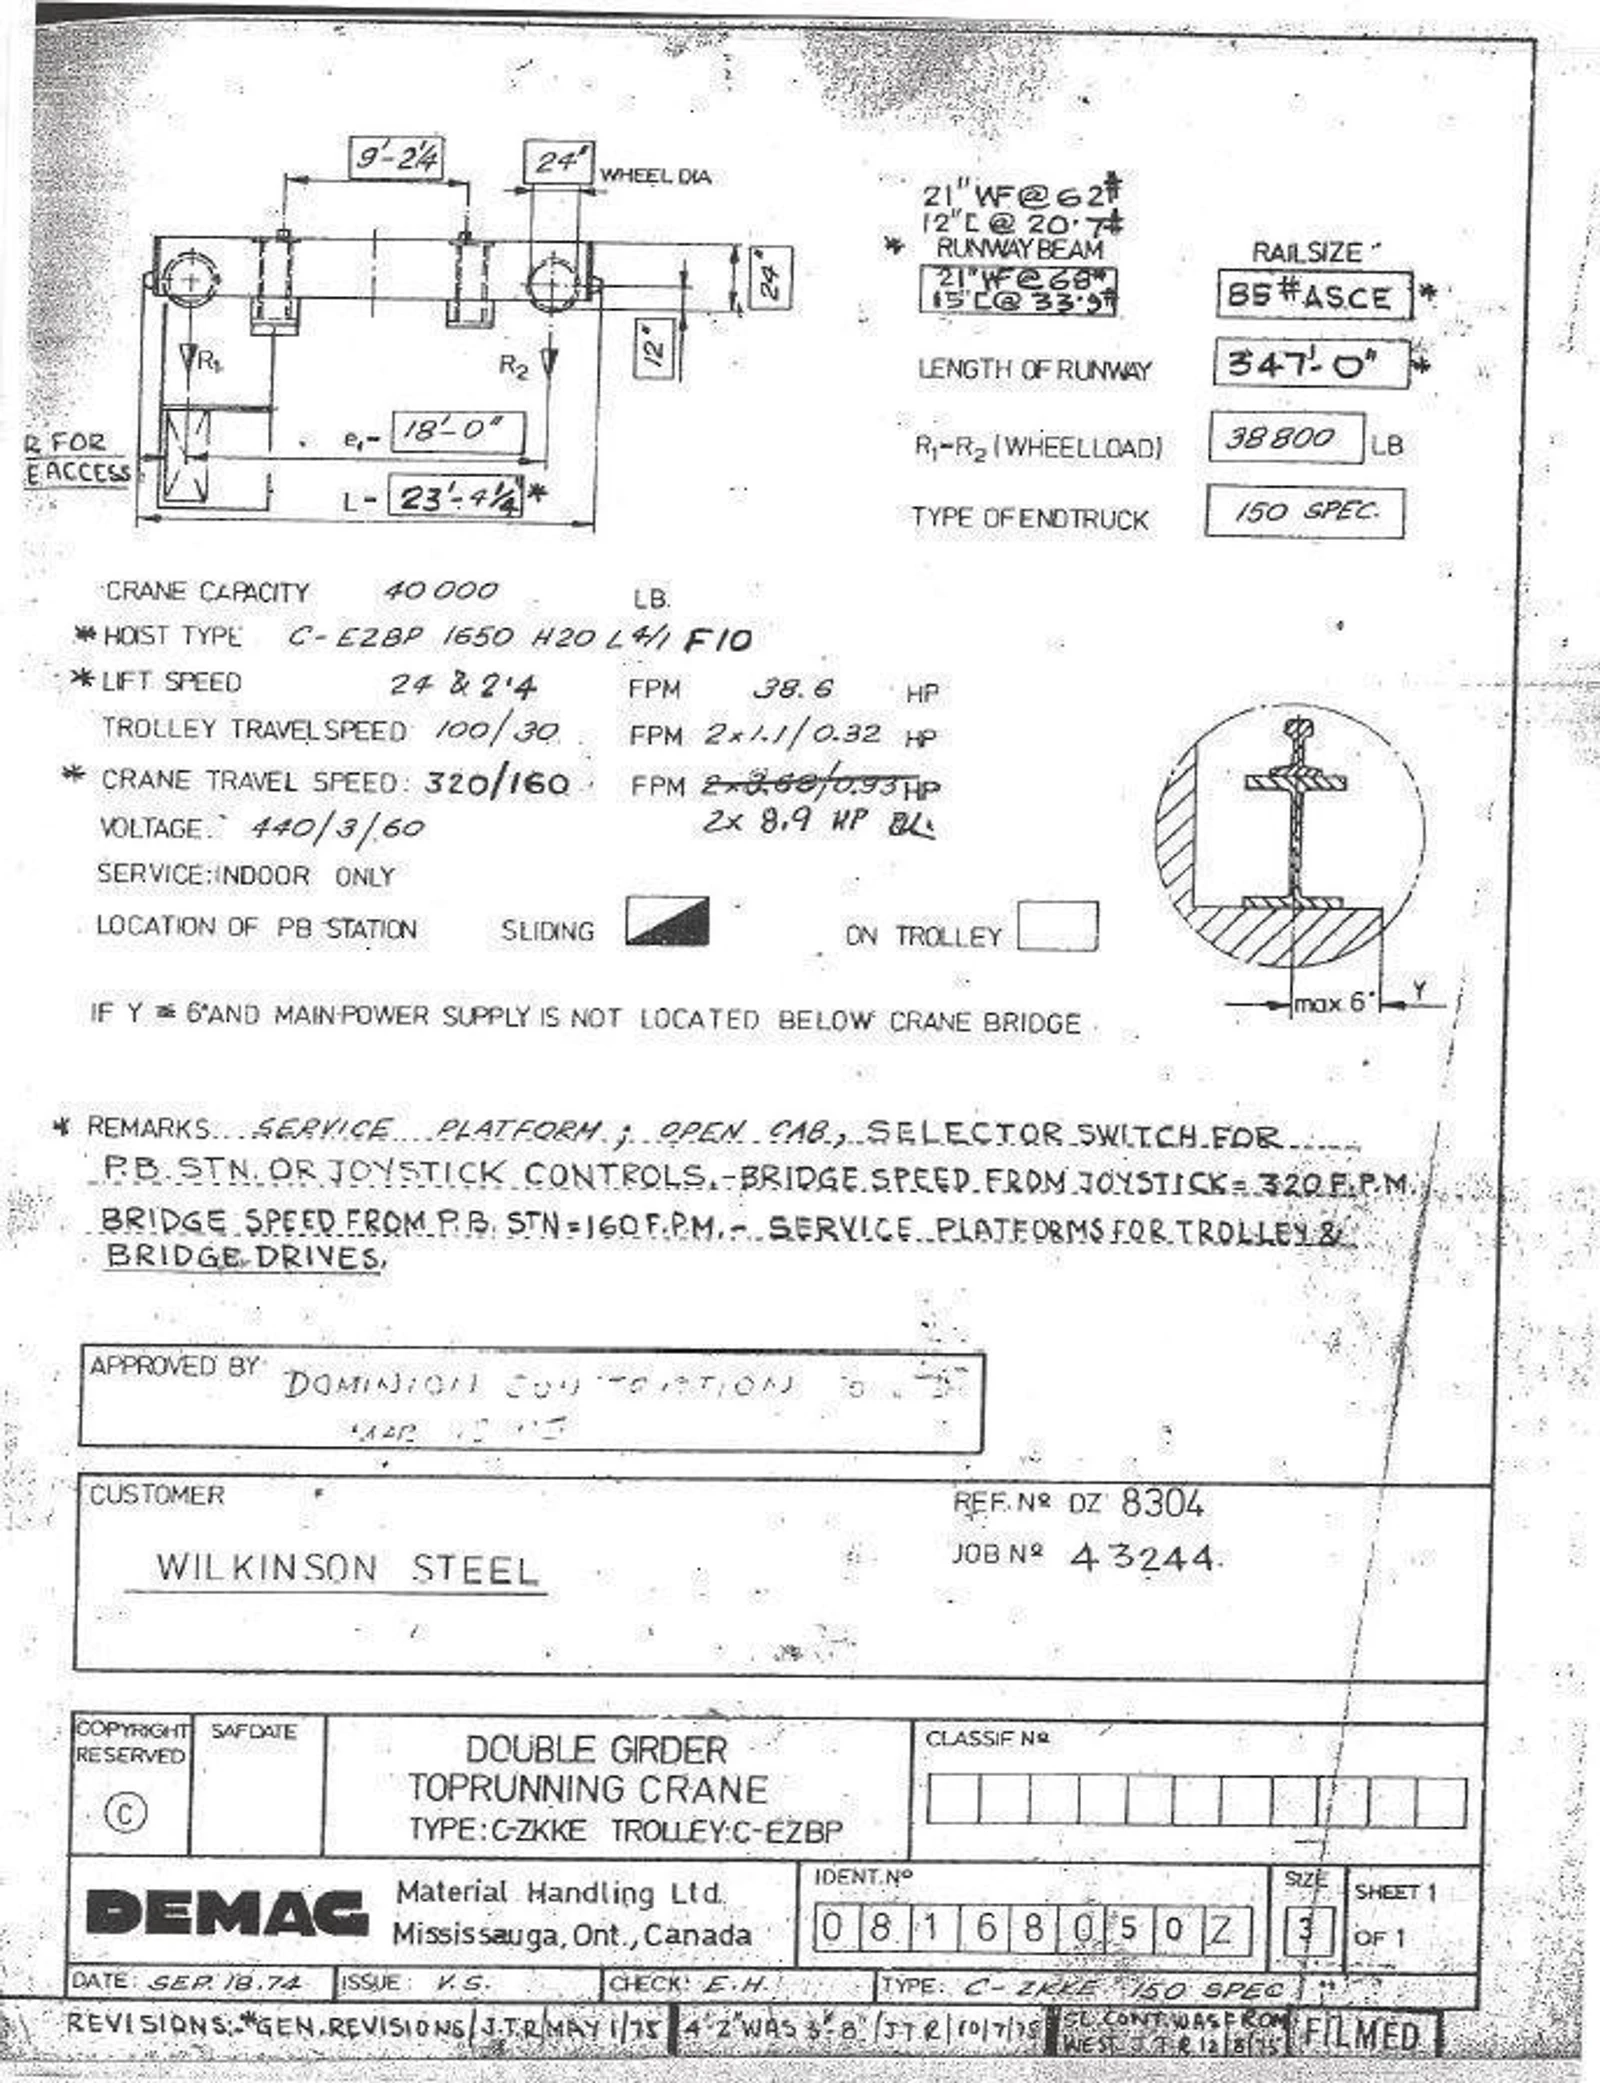 9'-2¼
24"
WHEEL DIA
24"
12"
R₁
R₂
R FOR
E ACCESS
e₁- 18'-0"
L- 23'-4¼" *
21" WF @ 62#
12"[ @ 20.7#
* RUNWAY BEAM
21" WF @ 68#
15"[ @ 33.9#
RAILSIZE
85#ASCE *
LENGTH OF RUNWAY 347'-0" *
R₁-R₂ (WHEELLOAD) 38800 LB
TYPE OF ENDTRUCK 150 SPEC.
CRANE CAPACITY 40000 LB.
* HOIST TYPE C-EZBP 1650 H20 L 4/1 F10
* LIFT SPEED 24 & 2.4 FPM 38.6 HP
TROLLEY TRAVELSPEED 100/30 FPM 2x1.1/0.32 HP
* CRANE TRAVEL SPEED: 320/160 FPM HP
2x 8.9 HP
VOLTAGE: 440/3/60
SERVICE: INDOOR ONLY
LOCATION OF PB STATION SLIDING ON TROLLEY
max 6" Y
IF Y ≅ 6" AND MAIN-POWER SUPPLY IS NOT LOCATED BELOW CRANE BRIDGE
* REMARKS SERVICE PLATFORM; OPEN CAB, SELECTOR SWITCH FOR
P.B. STN. OR JOYSTICK CONTROLS.-BRIDGE SPEED FROM JOYSTICK = 320 F.P.M.
BRIDGE SPEED FROM P.B. STN = 160 F.P.M. - SERVICE PLATFORMS FOR TROLLEY &
BRIDGE DRIVES.
APPROVED BY DOMINION
CUSTOMER
WILKINSON STEEL
REF. Nº DZ 8304
JOB Nº 43244.
COPYRIGHT
RESERVED
©
SAFDATE
DOUBLE GIRDER
TOPRUNNING CRANE
TYPE: C-ZKKE TROLLEY: C-EZBP
CLASSIF Nº
DEMAG Material Handling Ltd.
Mississauga, Ont., Canada
IDENT. Nº
0 8 1 6 8 0 5 0 Z
SIZE
3
SHEET 1
OF 1
DATE: SEP. 18.74 ISSUE: V.S. CHECK: E.H. TYPE: C-ZKKE 150 SPEC
REVISIONS: *GEN. REVISIONS/J.T.R/MAY 1/75 4'-2" WAS 3'-8" /JTR/10/7/75 CONT. WAS FROM
WEST J.T.R 12/8/75
FILMED